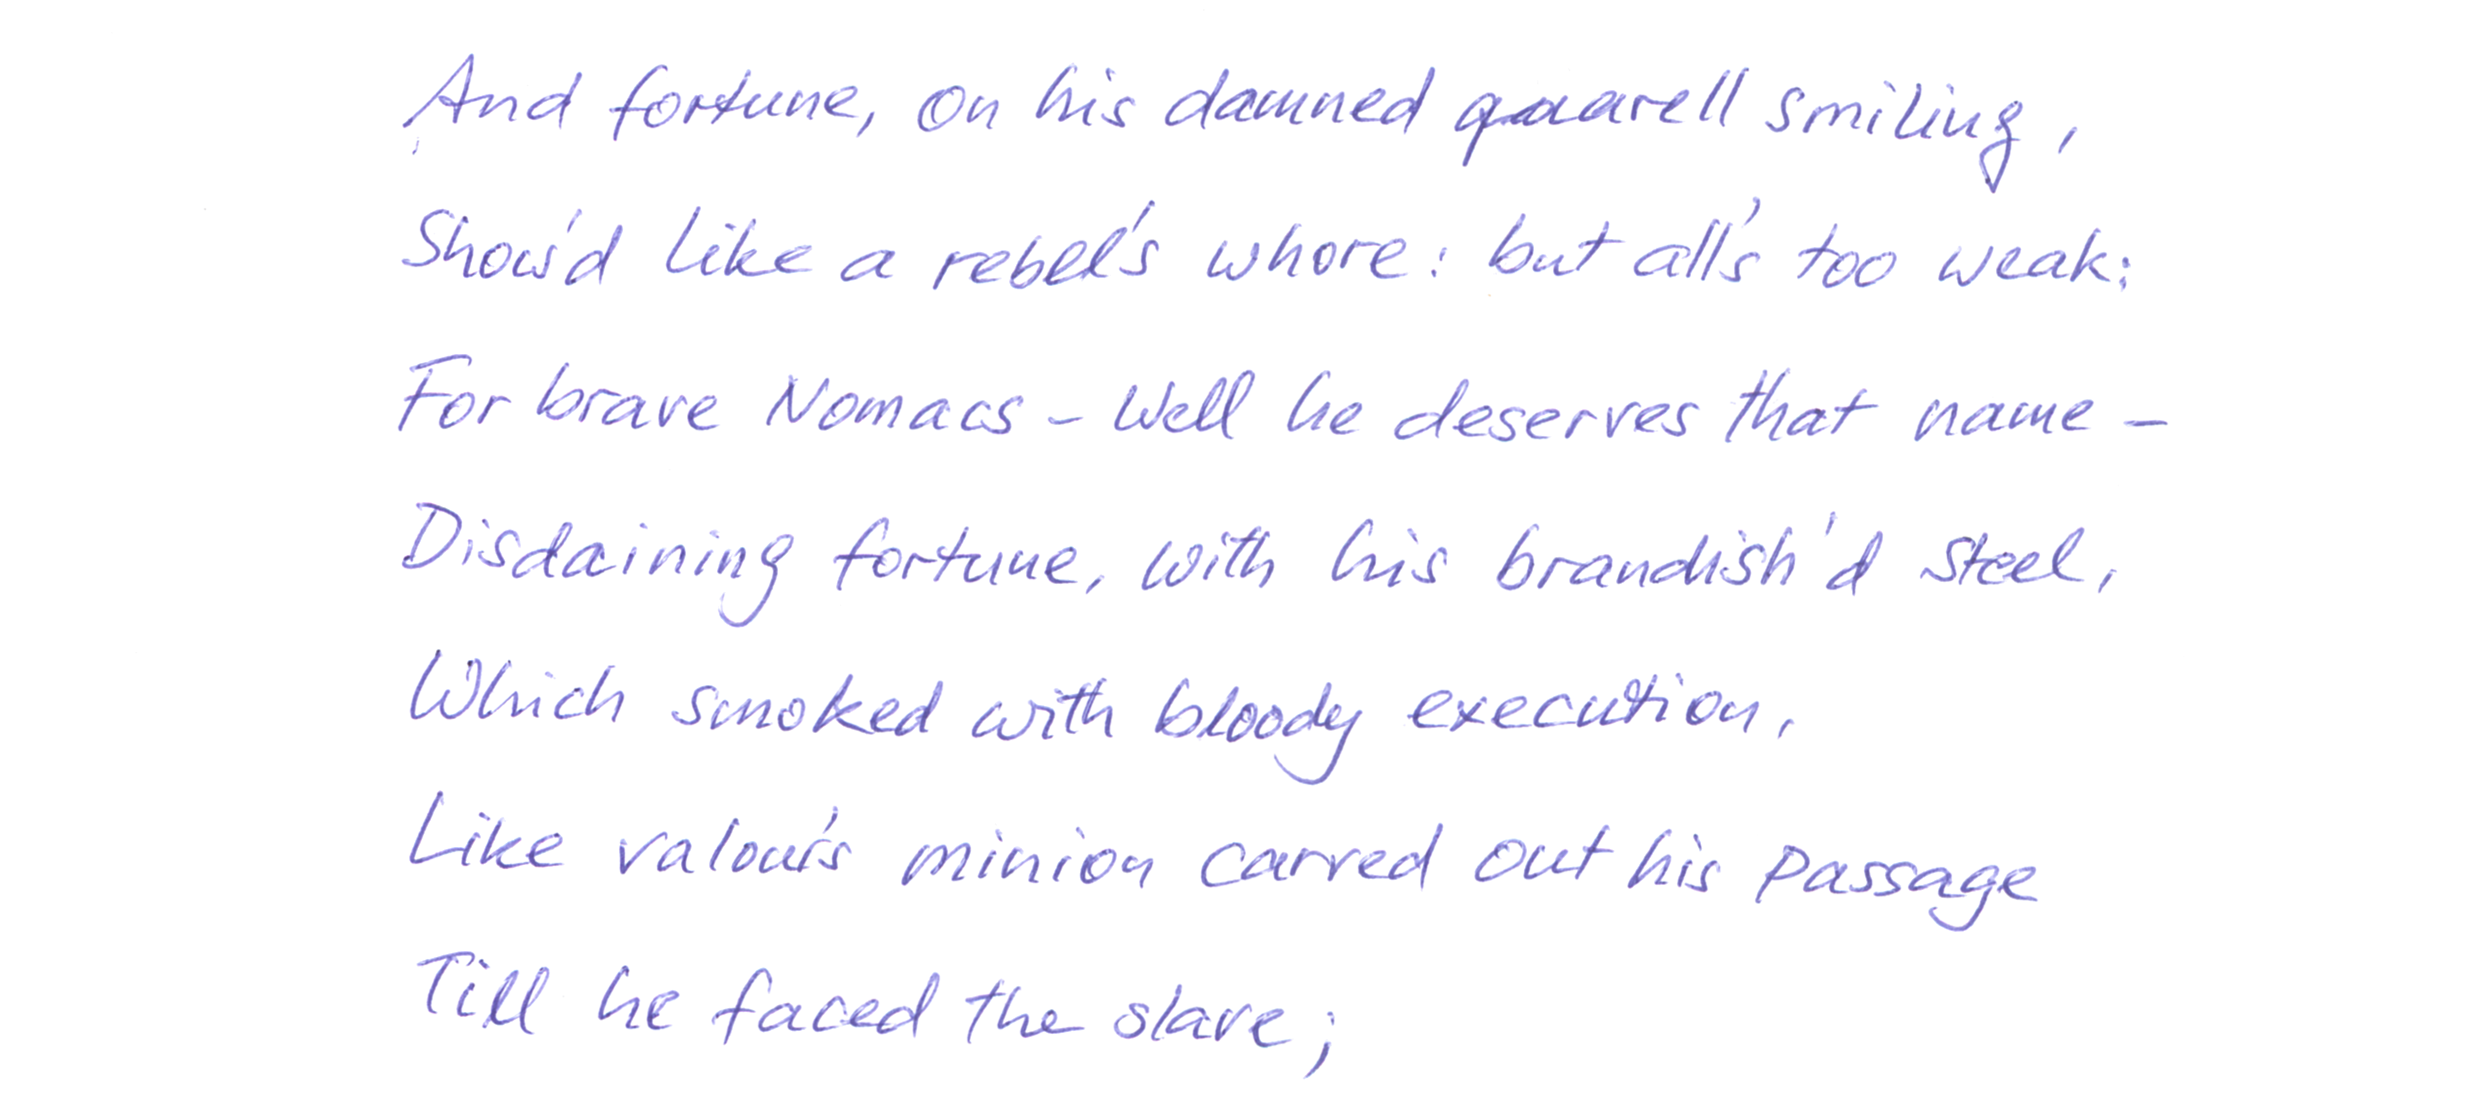 And fortune, on his damned quarell smiling,
Show'd like a rebel's whore: but all's too weak:
For brave Nomacs - Well he deserves that name -
Disdaining fortune, with his brandish'd steel,
Which smoked with bloody execution,
Like valour's minion carved out his passage
Till he faced the slave;